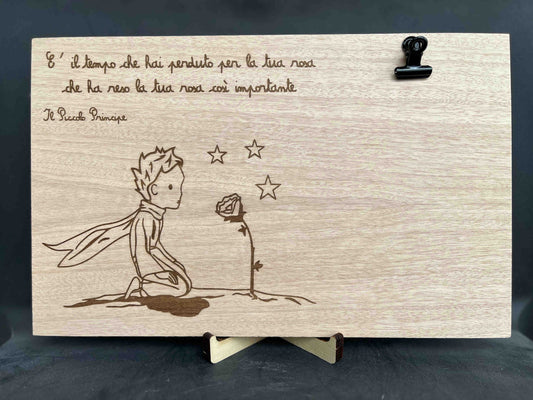 E' il tempo che hai perduto per la tua rosa
che ha reso la tua rosa così importante
Il Piccolo Principe